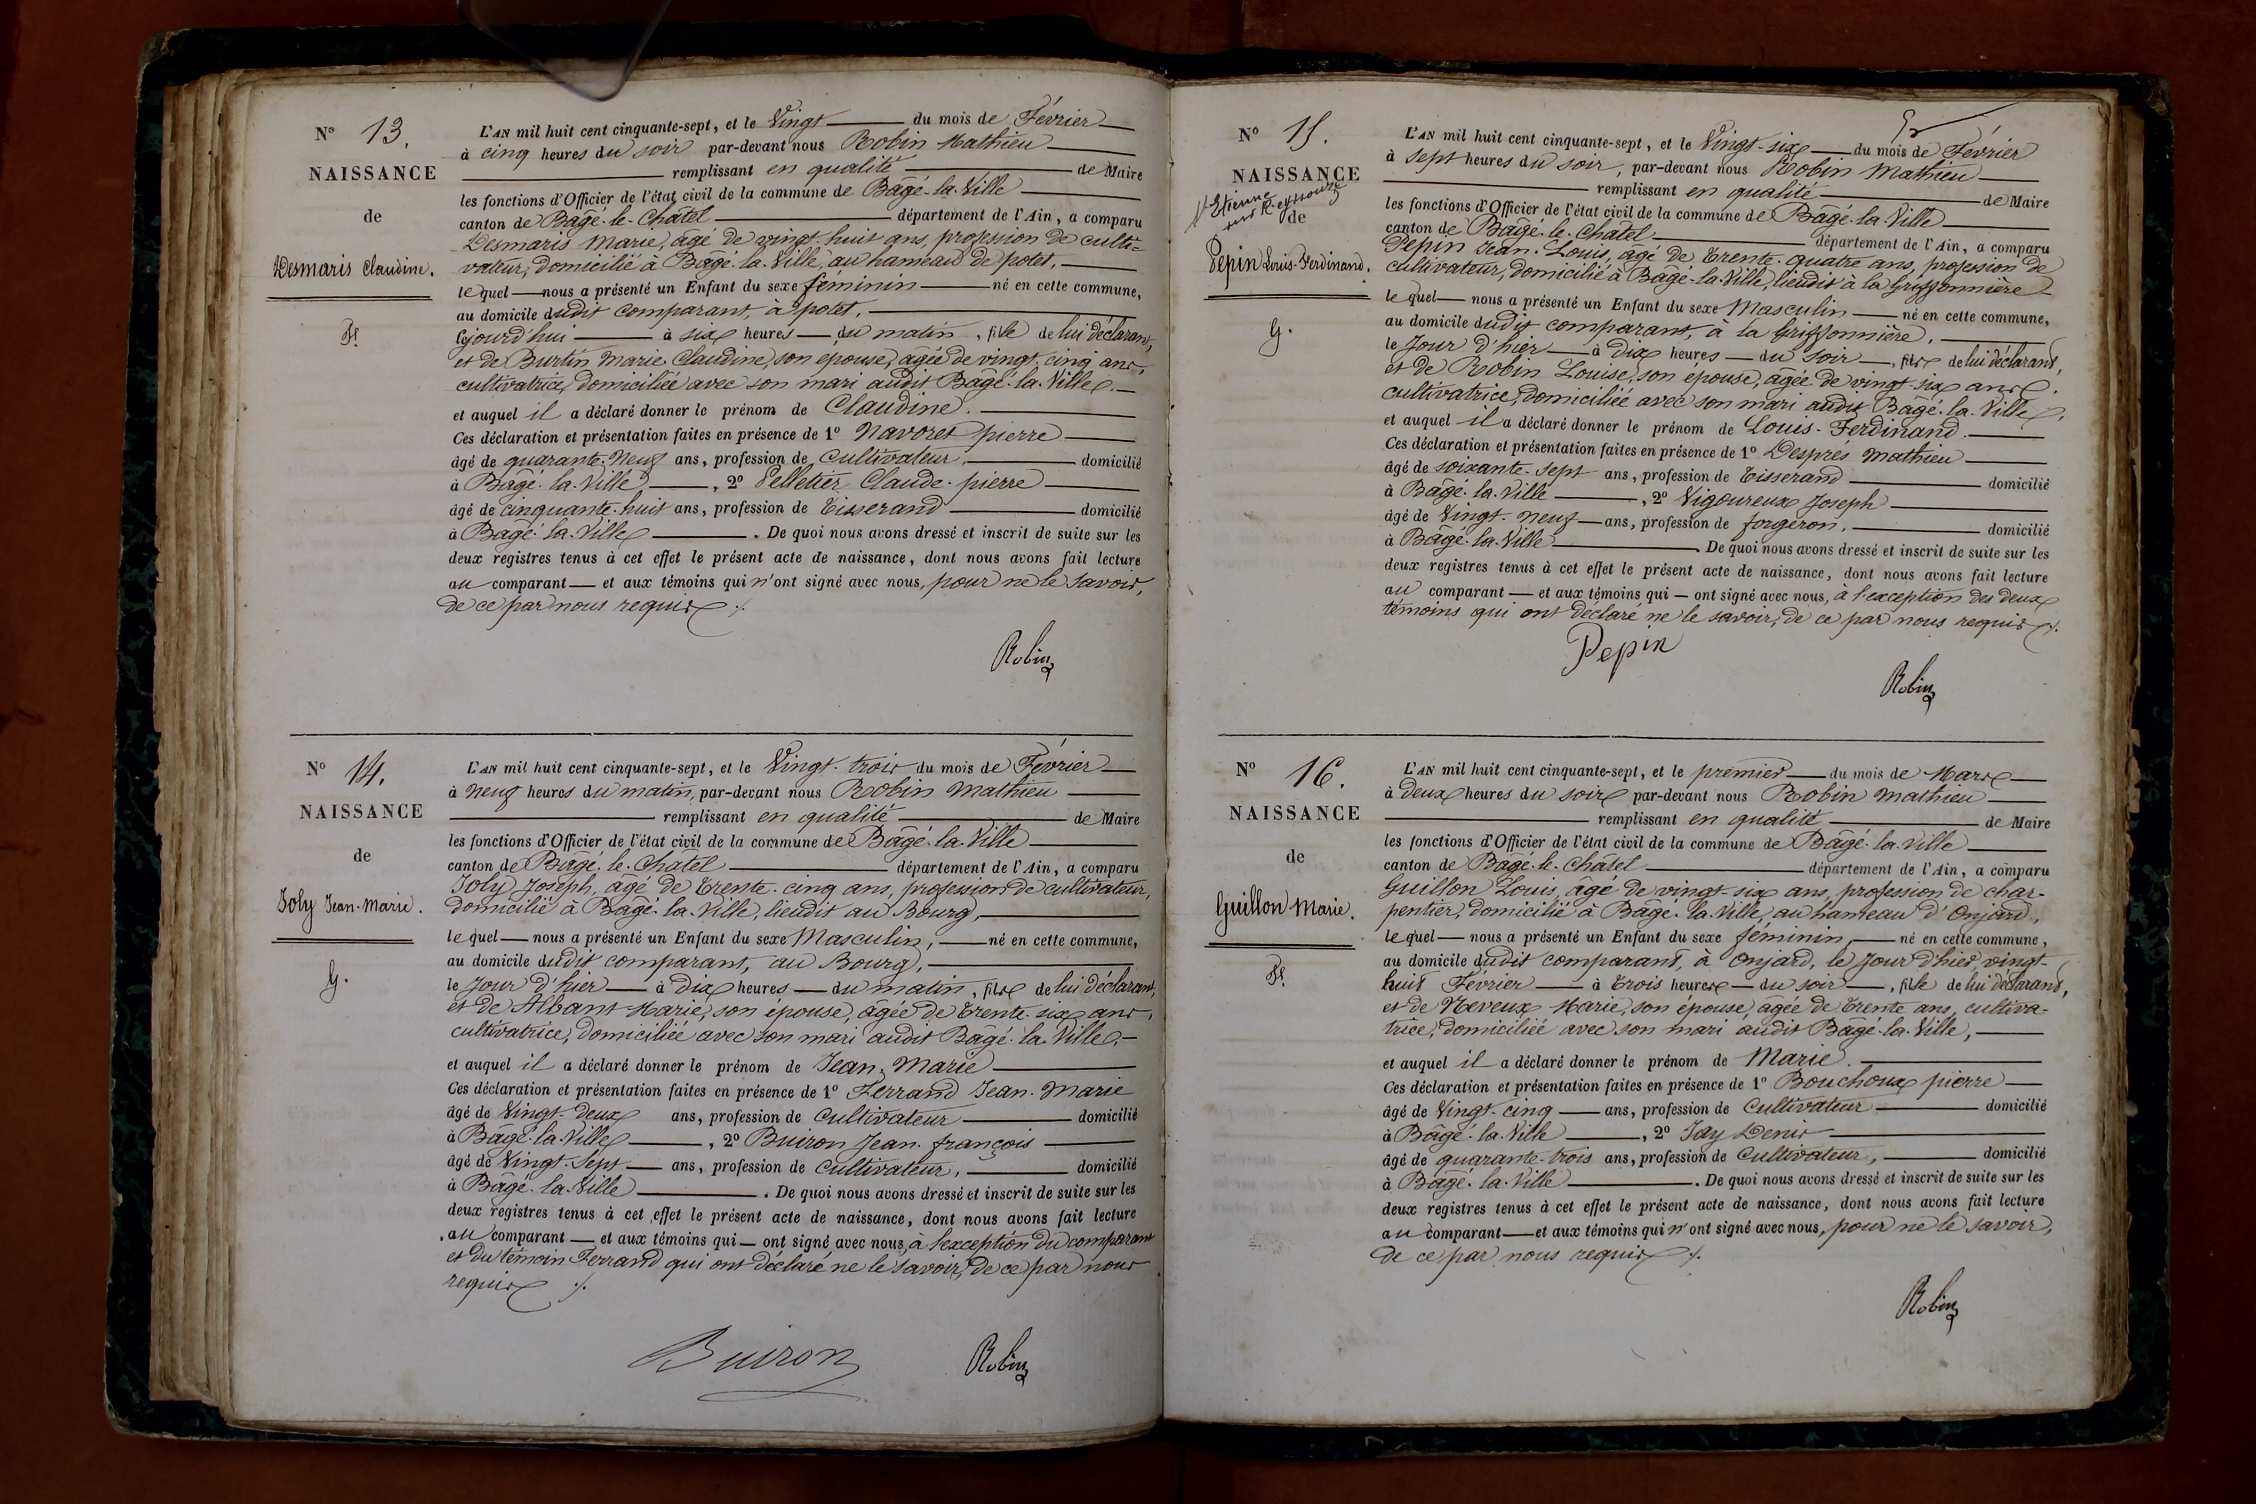 N° 13.
NAISSANCE
de
Desmaris Claudine.
F.
L'AN mil huit cent cinquante-sept, et le Vingt du mois de Février
à cinq heures du soir par-devant nous Robin Mathieu
remplissant en qualité de Maire
les fonctions d'Officier de l'état civil de la commune de Bâgé-la-Ville
canton de Bâgé-le-Châtel département de l'Ain, a comparu
Desmaris Marie, âgé de vingt-huit ans, profession de culti-
vateur, domicilié à Bâgé-la-Ville, au hameau de potet,
lequel nous a présenté un Enfant du sexe féminin né en cette commune,
au domicile dudit comparant, à potet,
cejourd'hui à six heures du matin, fille de lui déclarant,
et de Burtin Marie-Claudine, son épouse, âgée de vingt-cinq ans,
cultivatrice, domiciliée avec son mari audit Bâgé-la-Ville.
et auquel il a déclaré donner le prénom de Claudine.
Ces déclaration et présentation faites en présence de 1° Navoret pierre
âgé de quarante-Neuf ans, profession de Cultivateur, domicilié
à Bâgé-la-Ville, 2° Pelletier Claude-pierre
âgé de cinquante-huit ans, profession de Tisserand domicilié
à Bâgé-la-Ville. De quoi nous avons dressé et inscrit de suite sur les
deux registres tenus à cet effet le présent acte de naissance, dont nous avons fait lecture
au comparant et aux témoins qui n'ont signé avec nous, pour ne le savoir,
de ce par nous requis ./.
Robin
N° 14.
NAISSANCE
de
Joly Jean-Marie.
G.
L'AN mil huit cent cinquante-sept, et le Vingt-trois du mois de Février
à Neuf heures du matin, par-devant nous Robin Mathieu
remplissant en qualité de Maire
les fonctions d'Officier de l'état civil de la commune de Bâgé-la-Ville
canton de Bâgé-le-Châtel département de l'Ain, a comparu
Joly Joseph, âgé de Trente-cinq ans, profession de cultivateur,
domicilié à Bâgé-la-Ville, lieudit au Bourg,
lequel nous a présenté un Enfant du sexe Masculin, né en cette commune,
au domicile dudit comparant, au Bourg,
le Jour d'hier à Dix heures du matin, fils de lui déclarant,
et de Albant Marie, son épouse, âgée de Trente-six ans,
cultivatrice, domiciliée avec son mari audit Bâgé-la-Ville,
et auquel il a déclaré donner le prénom de Jean-Marie
Ces déclaration et présentation faites en présence de 1° Ferrand Jean-Marie
âgé de Vingt-deux ans, profession de Cultivateur domicilié
à Bâgé-la-Ville, 2° Buiron Jean-françois
âgé de Vingt-Sept ans, profession de Cultivateur, domicilié
à Bâgé-la-Ville. De quoi nous avons dressé et inscrit de suite sur les
deux registres tenus à cet effet le présent acte de naissance, dont nous avons fait lecture
au comparant et aux témoins qui ont signé avec nous, à l'exception du comparant
et du témoin Ferrand qui ont déclaré ne le savoir, de ce par nous
requis ./.
Buiron Robin
N° 15.
NAISSANCE
St Etienne
sur Reyssouze
de
Pepin Louis-Ferdinand.
G.
L'AN mil huit cent cinquante-sept, et le Vingt-six du mois de Février
à Sept heures du soir, par-devant nous Robin Mathieu
remplissant en qualité de Maire
les fonctions d'Officier de l'état civil de la commune de Bâgé-la-Ville
canton de Bâgé-le-Châtel département de l'Ain, a comparu
Pepin Jean-Louis, âgé de Trente-quatre ans, profession de
cultivateur, domicilié à Bâgé-la-Ville, lieudit à la Griffonnière
lequel nous a présenté un Enfant du sexe Masculin né en cette commune,
au domicile dudit comparant, à la Griffonnière,
le Jour d'hier à Dix heures du soir, fils de lui déclarant,
et de Robin Louise, son épouse, âgée de vingt-six ans,
cultivatrice, domiciliée avec son mari audit Bâgé-la-Ville,
et auquel il a déclaré donner le prénom de Louis-Ferdinand.
Ces déclaration et présentation faites en présence de 1° Despres Mathieu
âgé de soixante-sept ans, profession de Tisserand domicilié
à Bâgé-la-Ville, 2° Vigoureux Joseph
âgé de Vingt-neuf ans, profession de forgeron, domicilié
à Bâgé-la-Ville. De quoi nous avons dressé et inscrit de suite sur les
deux registres tenus à cet effet le présent acte de naissance, dont nous avons fait lecture
au comparant et aux témoins qui ont signé avec nous, à l'exception des deux
témoins qui ont déclaré ne le savoir, de ce par nous requis ./.
Pepin
Robin
N° 16.
NAISSANCE
de
Guillon Marie.
F.
L'AN mil huit cent cinquante-sept, et le premier du mois de Mars
à deux heures du soir par-devant nous Robin Mathieu
remplissant en qualité de Maire
les fonctions d'Officier de l'état civil de la commune de Bâgé-la-Ville
canton de Bâgé-le-Châtel département de l'Ain, a comparu
Guillon Louis, âgé de vingt-six ans, profession de char-
pentier, domicilié à Bâgé-la-Ville, au hameau d'Onjard,
lequel nous a présenté un Enfant du sexe féminin, né en cette commune,
au domicile dudit comparant, à Onjard, le Jour d'hier, vingt-
huit Février à Trois heures du soir, fille de lui déclarant,
et de Neveux Marie, son épouse, âgée de Trente ans, cultiva-
trice, domiciliée avec son mari audit Bâgé-la-Ville,
et auquel il a déclaré donner le prénom de Marie.
Ces déclaration et présentation faites en présence de 1° Bouchoux pierre
âgé de Vingt-cinq ans, profession de Cultivateur domicilié
à Bâgé-la-Ville, 2° Jay Denis
âgé de quarante-trois ans, profession de Cultivateur, domicilié
à Bâgé-la-Ville. De quoi nous avons dressé et inscrit de suite sur les
deux registres tenus à cet effet le présent acte de naissance, dont nous avons fait lecture
au comparant et aux témoins qui n'ont signé avec nous, pour ne le savoir,
de ce par nous requis ./.
Robin